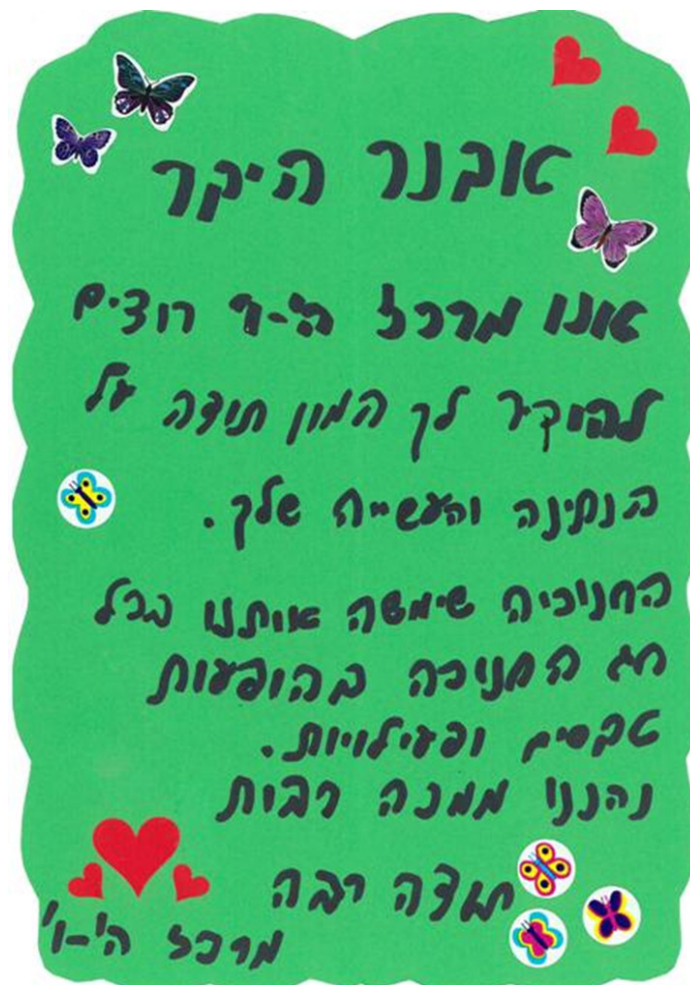 אבנר היקר
אנו מרכז ה'-ו' רוצים
להוקיר לך המון תודה על
הנתינה והעשייה שלך.
החנוכיה שימשה אותנו בכל
חג החנוכה בהופעות
טקסים ופעילויות.
נהננו ממנה רבות
תודה רבה
מרכז ה'-ו'